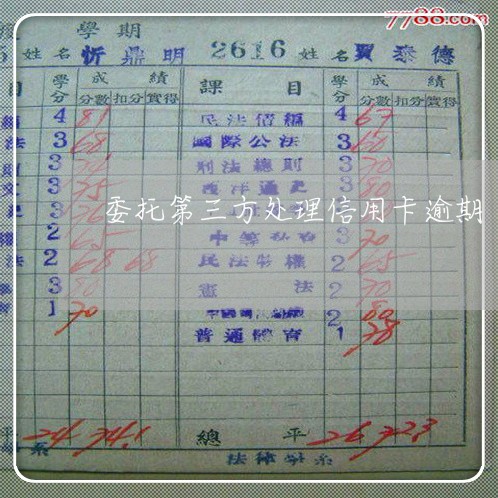 7788.com
學期
姓名 忻鼎明 2616 姓名 賈泰德
目 學分 成績 課目 學分 成績
分數 扣分 實得 分數 扣分 實得
4 81 民法債編 4 67
法 3 68 國際公法 3 60
3 刑法總則 3 70
3 75 西洋通史 3 80
委托第三方处理信用卡逾期
2 65 3 70
法 2 68 68 民法物權 2 65
3 80 憲法 2 70
1 70 2 80
普通體育 1 78
平 24 74.1 總平 26 72.3
系 法律學系